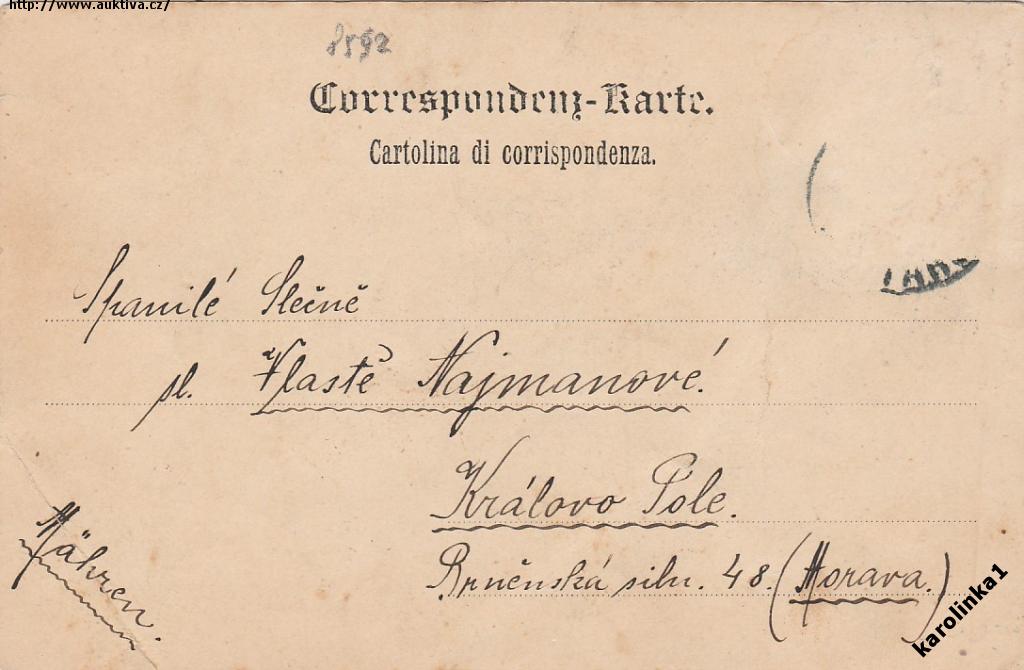 http://www.auktiva.cz/
8592
Correspondenz-Karte.
Cartolina di corrispondenza.
Spanilé Slečně
sl. Vlastě Najmanové!
Královo Pole.
Brněnská siln. 48. (Morava.)
Mähren.
karolinka1